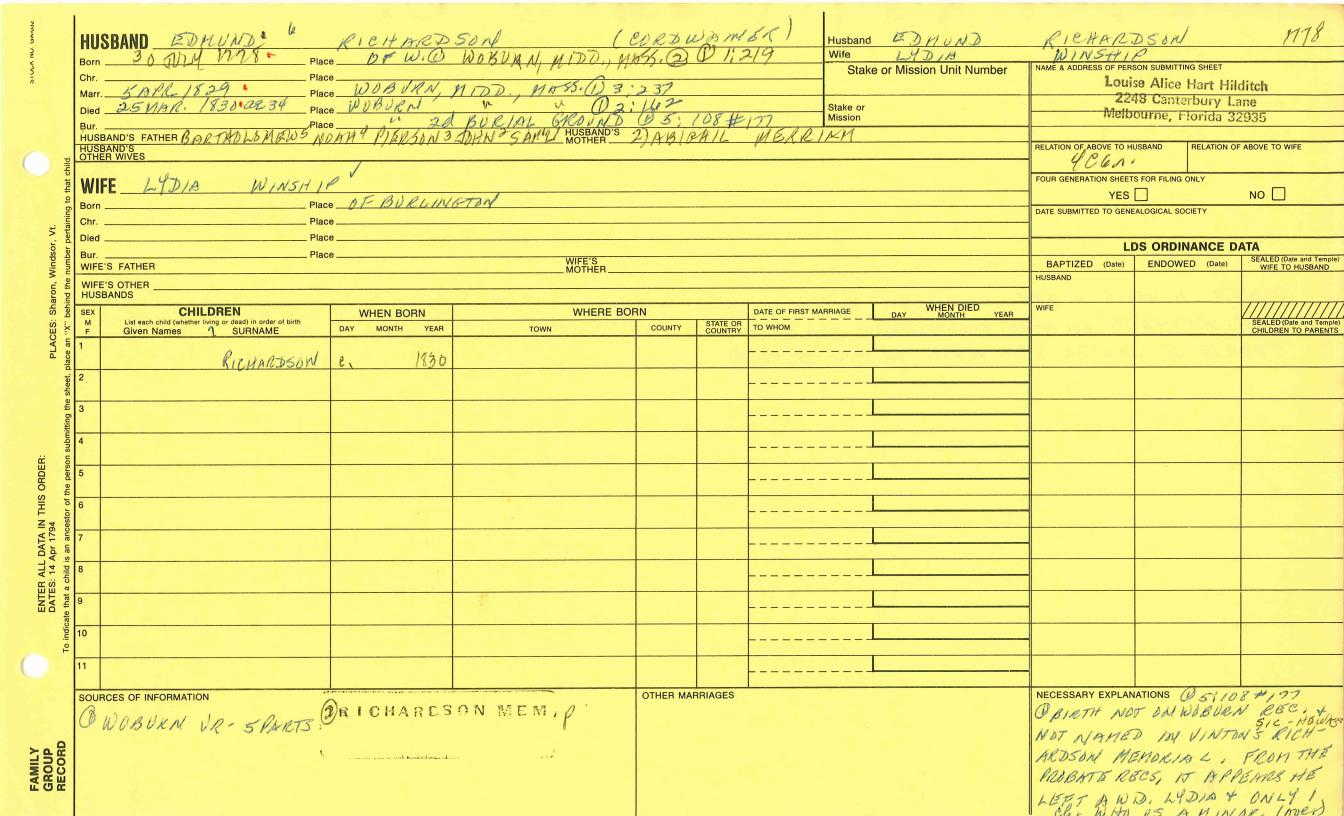 HUSBAND EDMUND 6 RICHARDSON (CORDWAINER)
Born 30 JULY 1778 Place OF W. ① WOBURN, MIDD., MASS. ② ① 1:219
Chr. Place
Marr. 5 APR. 1829 Place WOBURN, MIDD., MASS. ① 3:237
Died 25 MAR. 1830 OR 34 Place WOBURN " " ① 2:162
Bur. Place " 2d BURIAL GROUND ① 5:108 #177
HUSBAND'S FATHER BARTHOLOMEW5 NOAH4 PIERSON3 JOHN2 SAML1 HUSBAND'S MOTHER 2) ABIGAIL MERRIAM
HUSBAND'S OTHER WIVES
WIFE LYDIA WINSHIP ✓
Born Place OF BURLINGTON
Chr. Place
Died Place
Bur. Place
WIFE'S FATHER WIFE'S MOTHER
WIFE'S OTHER HUSBANDS
Husband EDMUND RICHARDSON 1778
Wife LYDIA WINSHIP
Stake or Mission Unit Number
Stake or Mission
NAME & ADDRESS OF PERSON SUBMITTING SHEET
Louise Alice Hart Hilditch
2248 Canterbury Lane
Melbourne, Florida 32935
RELATION OF ABOVE TO HUSBAND RELATION OF ABOVE TO WIFE
FOUR GENERATION SHEETS FOR FILING ONLY
YES NO
DATE SUBMITTED TO GENEALOGICAL SOCIETY
LDS ORDINANCE DATA
BAPTIZED (Date) ENDOWED (Date) SEALED (Date and Temple) WIFE TO HUSBAND
HUSBAND
WIFE
SEALED (Date and Temple) CHILDREN TO PARENTS
SEX M F
CHILDREN
List each child (whether living or dead) in order of birth
Given Names SURNAME
WHEN BORN
DAY MONTH YEAR
WHERE BORN
TOWN COUNTY STATE OR COUNTRY
DATE OF FIRST MARRIAGE
TO WHOM
WHEN DIED
DAY MONTH YEAR
1 RICHARDSON c. 1830
2
3
4
5
6
7
8
9
10
11
SOURCES OF INFORMATION
① WOBURN VR - 5 PARTS. ② RICHARDSON MEM, p
OTHER MARRIAGES
NECESSARY EXPLANATIONS ① 5:108 #177
① BIRTH NOT ON WOBURN REC. +
NOT NAMED IN VINTON'S RICH-
ARDSON MEMORIAL. FROM THE
PROBATE RECS, IT APPEARS HE
LEFT A WD. LYDIA + ONLY 1
ch. WHO IS A MINOR. (over)
PLACES: Sharon, Windsor, Vt.
To indicate that a child is an ancestor of the person submitting the sheet, place an "X" behind the number pertaining to that child.
ENTER ALL DATA IN THIS ORDER:
DATES: 14 Apr 1794
FAMILY
GROUP
RECORD